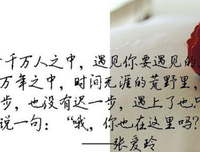 千万人之中，遇见你要遇见的
万年之中，时间无涯的荒野里，
步，也没有迟一步，遇上了也只
说一句：“哦，你也在这里吗？
——张爱玲